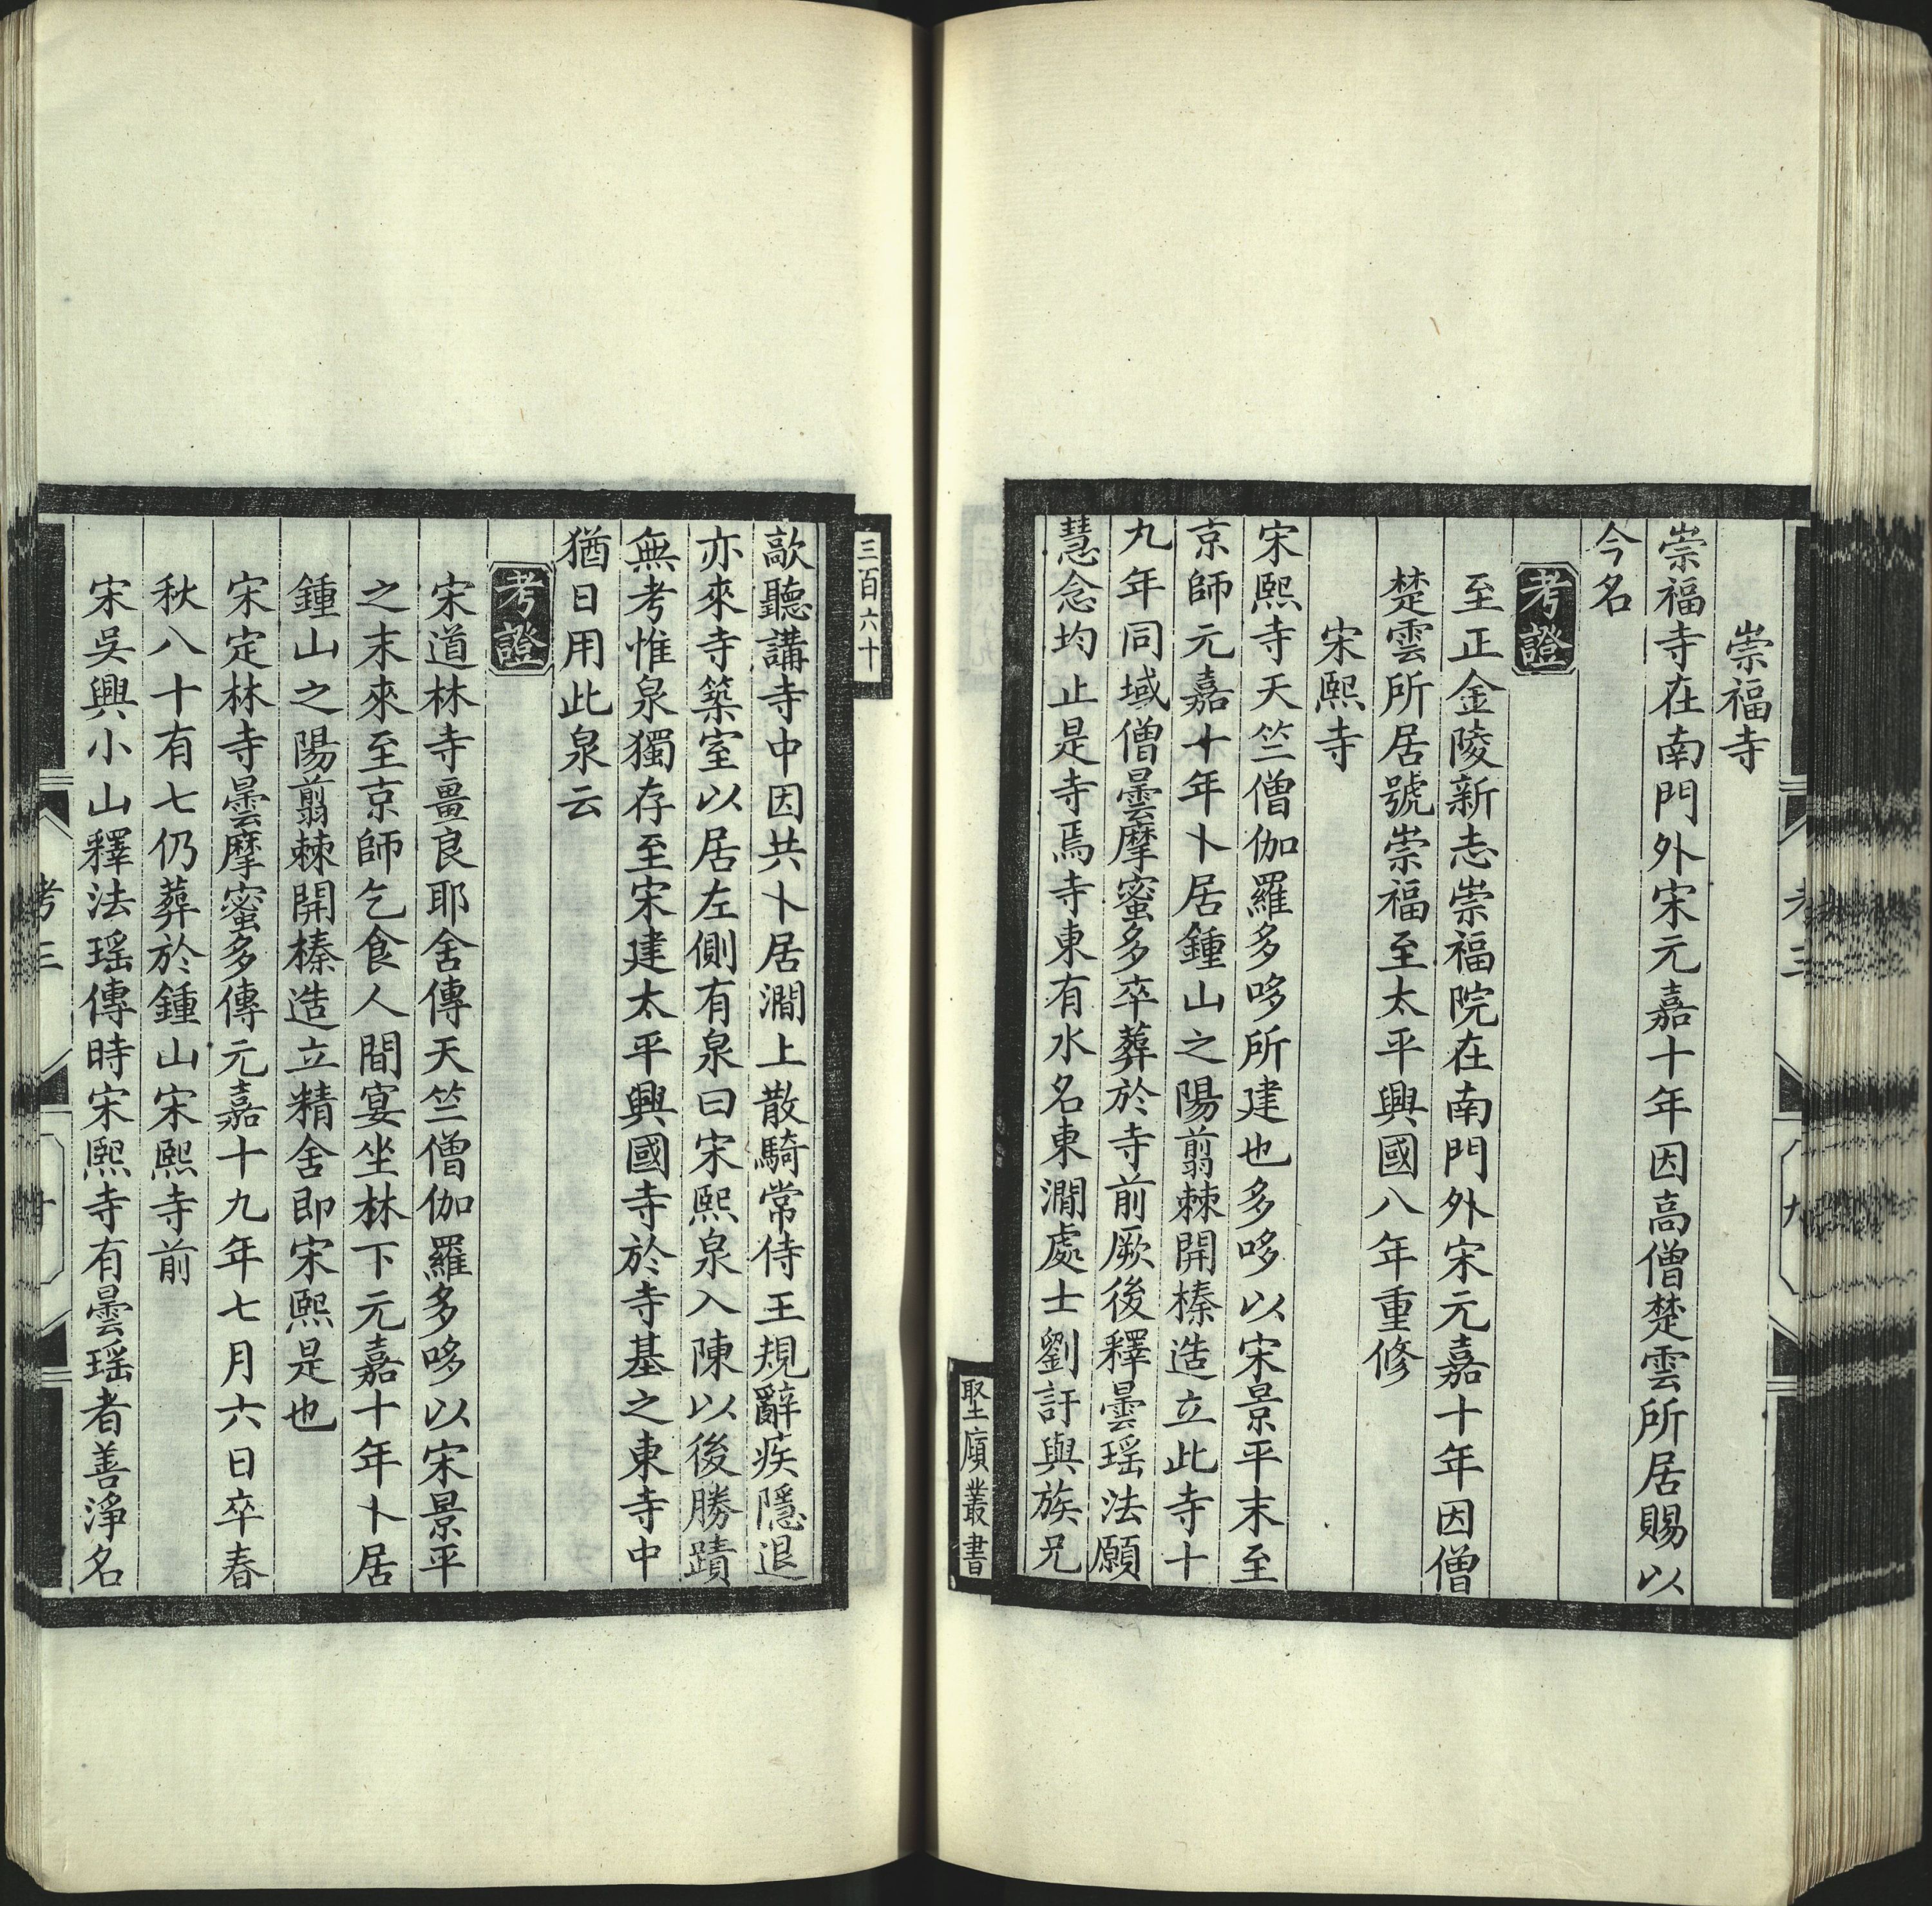 崇福寺
崇福寺在南門外宋元嘉十年因高僧楚雲所居賜以
今名
考證
至正金陵新志崇福院在南門外宋元嘉十年因僧
楚雲所居號崇福至太平興國八年重修
宋熙寺
宋熙寺天竺僧伽羅多哆所建也多哆以宋景平末至
京師元嘉十年卜居鍾山之陽翦棘開榛造立此寺十
九年同域僧曇摩蜜多卒葬於寺前厥後釋曇瑤法願
慧念均止是寺焉寺東有水名東澗處士劉訏與族兄
聖廎叢書
三百六十
歊聽講寺中因共卜居澗上散騎常侍王規辭疾隱退
亦來寺築室以居左側有泉曰宋熙泉入陳以後勝蹟
無考惟泉獨存至宋建太平興國寺於寺基之東寺中
猶日用此泉云
考證
宋道林寺畺良耶舍傳天竺僧伽羅多哆以宋景平
之末來至京師乞食人間宴坐林下元嘉十年卜居
鍾山之陽翦棘開榛造立精舍即宋熙是也
宋定林寺曇摩蜜多傳元嘉十九年七月六日卒春
秋八十有七仍葬於鍾山宋熙寺前
宋吳興小山釋法瑤傳時宋熙寺有曇瑤者善淨名
考三